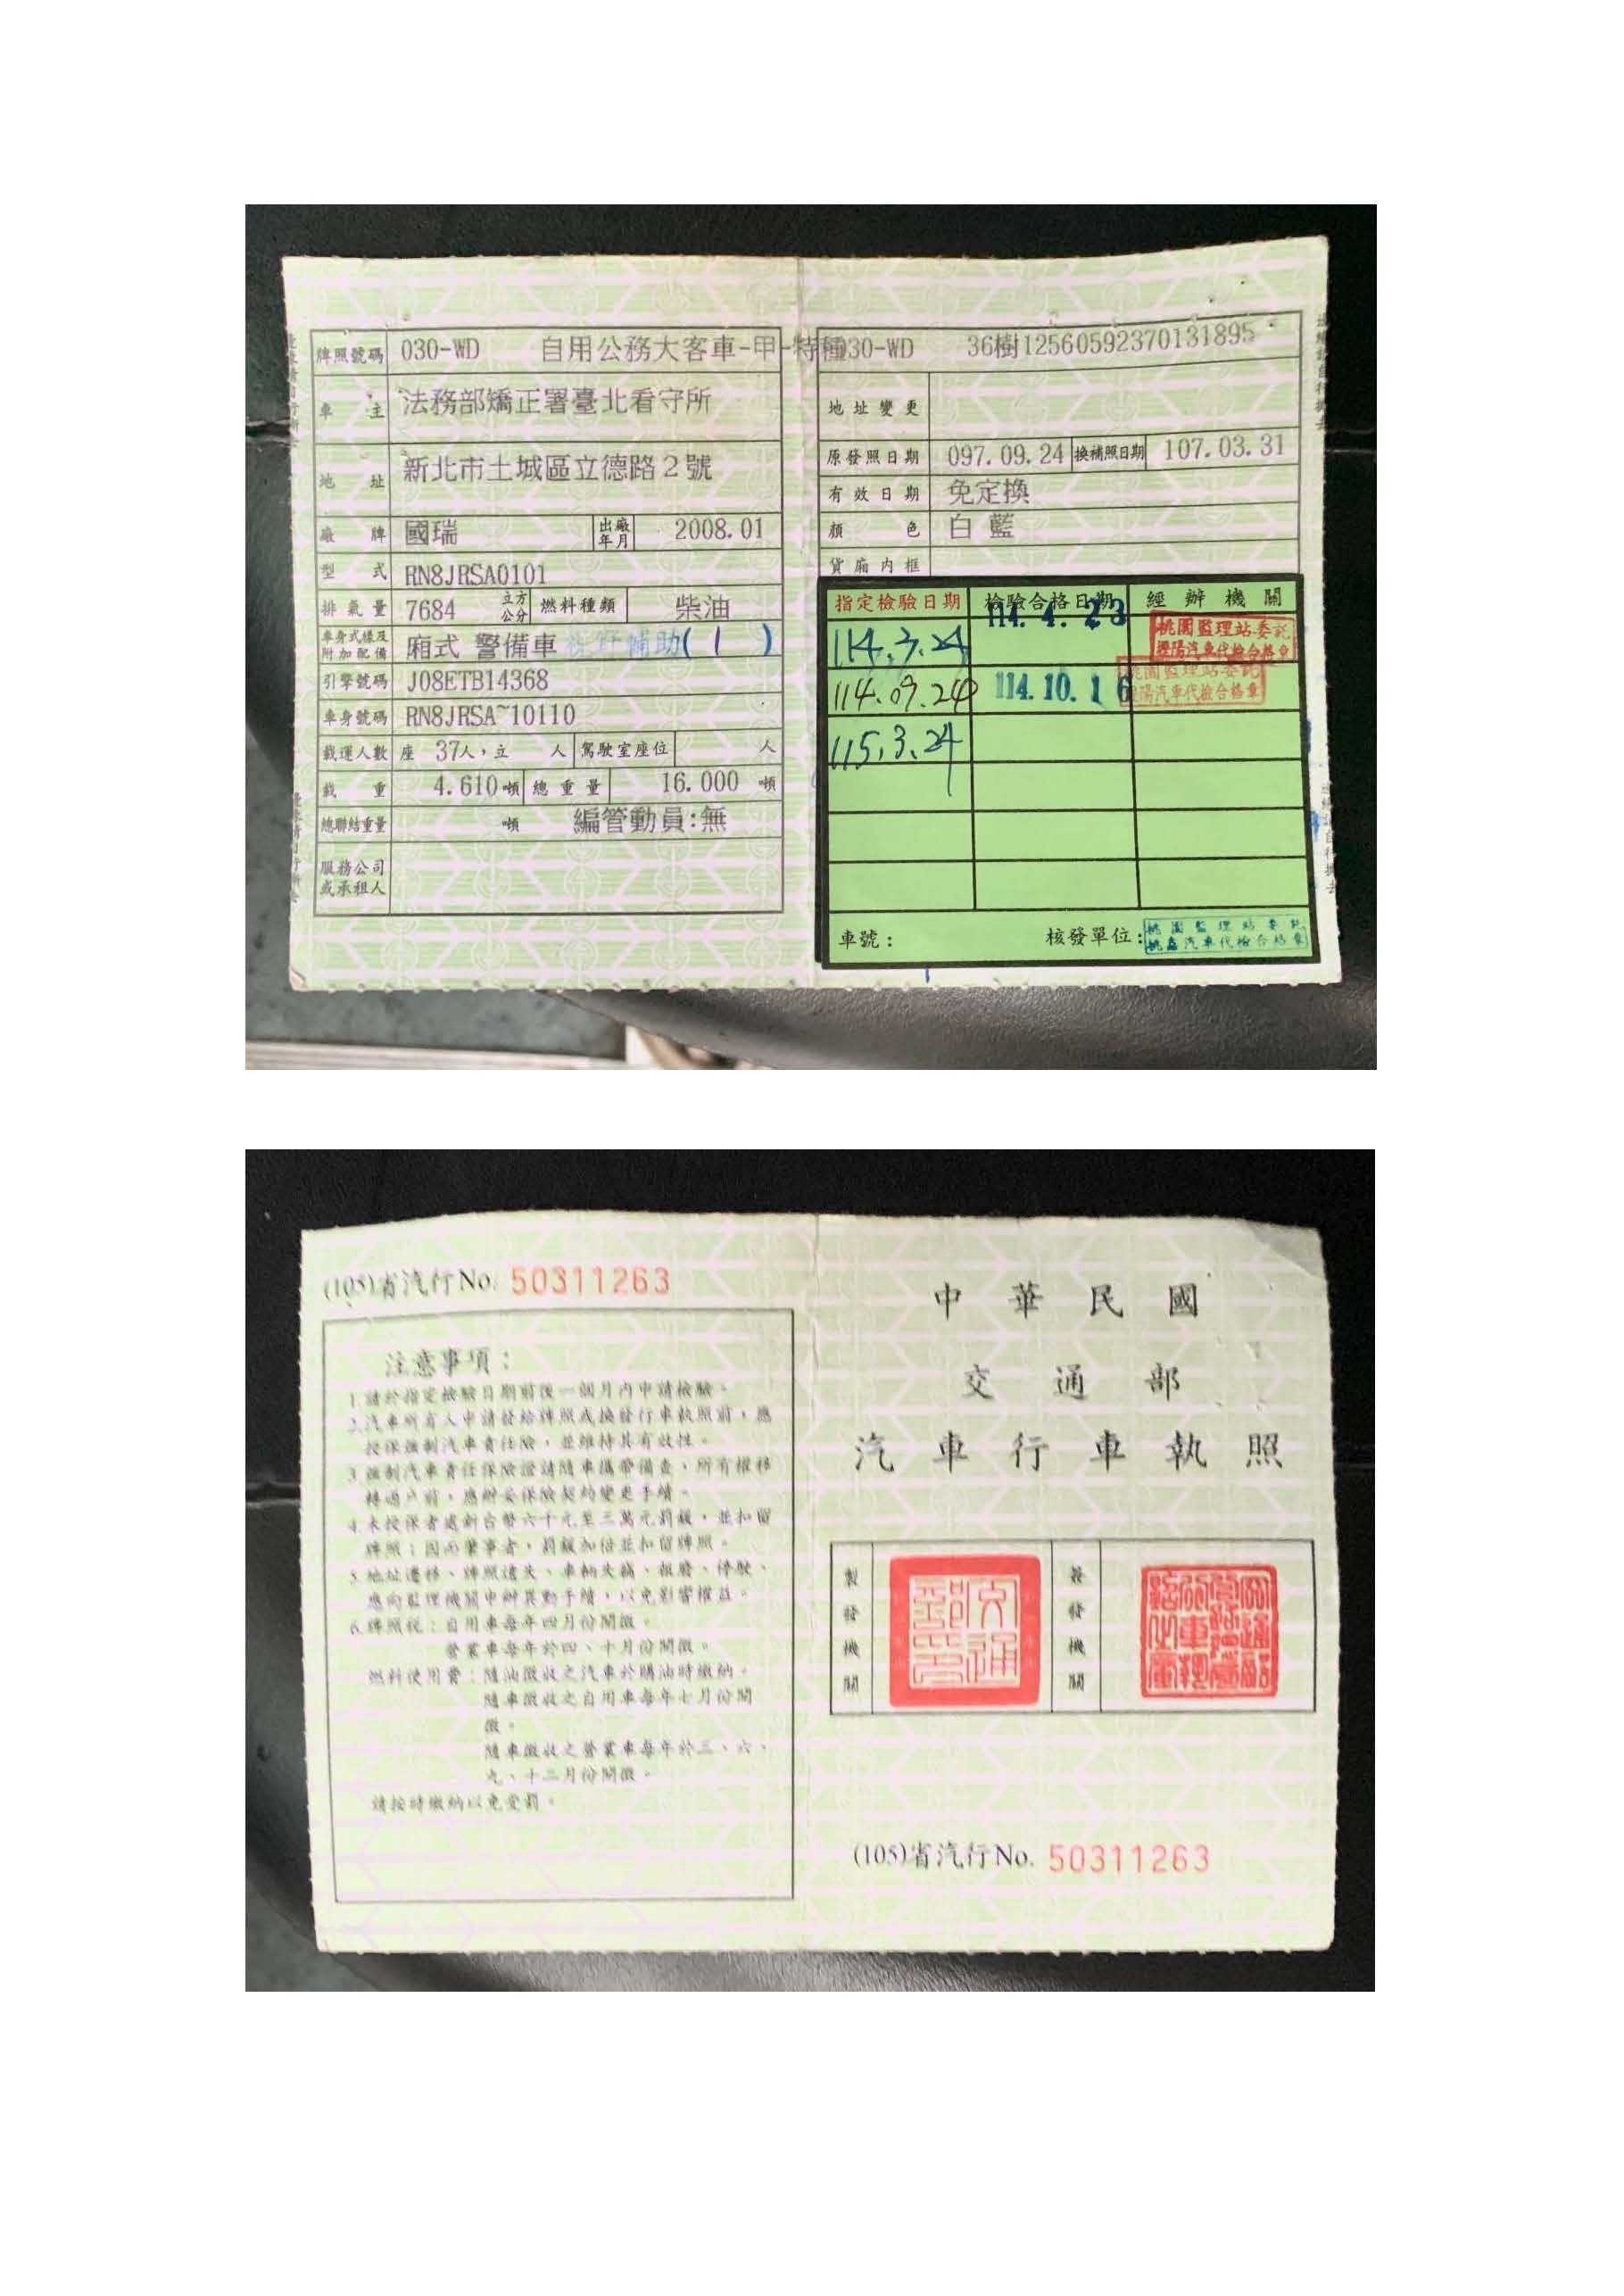 牌照號碼 030-WD 自用公務大客車-甲-特種
車主 法務部矯正署臺北看守所
地址 新北市土城區立德路2號
廠牌 國瑞 出廠年月 2008.01
型式 RN8JRSA0101
排氣量 7684 立方公分 燃料種類 柴油
車身式樣及附加配備 廂式 警備車 輔助( 1 )
引擎號碼 J08ETB14368
車身號碼 RN8JRSA~10110
載運人數 座 37人,立 人 駕駛室座位 人
載重 4.610噸 總重量 16.000 噸
總聯結重量 噸 編管動員:無
服務公司或承租人
030-WD 36樹12560592370131895
地址變更
原發照日期 097.09.24 換補照日期 107.03.31
有效日期 免定換
顏色 白 藍
貨廂內框
指定檢驗日期 檢驗合格日期 經辦機關
114.3.24 114.4.23 桃園監理站委託 汽車代檢合格章
114.09.24 114.10.16 桃園監理站委託 汽車代檢合格章
115.3.24
車號: 核發單位: 桃園監理站委託 汽車代檢合格章
(105)省汽行No. 50311263
注意事項:
1.請於指定檢驗日期前後一個月內申請檢驗。
2.汽車所有人申請發給牌照或換發行車執照前,應
投保強制汽車責任險,並維持其有效性。
3.強制汽車責任保險證請隨車攜帶備查、所有權移
轉過戶前,應辦妥保險契約變更手續。
4.未投保者處新台幣六千元至三萬元罰鍰,並扣留
牌照;因而肇事者,罰鍰加倍並扣留牌照。
5.地址遷移、牌照遺失、車輛失竊、報廢、停駛、
應向監理機關申辦異動手續,以免影響權益。
6.牌照稅:自用車每年四月份開徵。
營業車每年於四、十月份開徵。
燃料使用費:隨油徵收之汽車於購油時繳納。
隨車徵收之自用車每年七月份開
徵。
隨車徵收之營業車每年於三、六、
九、十二月份開徵。
請按時繳納以免受罰。
中華民國
交通部
汽車行車執照
製發機關 交通部印 簽發機關
(105)省汽行No. 50311263